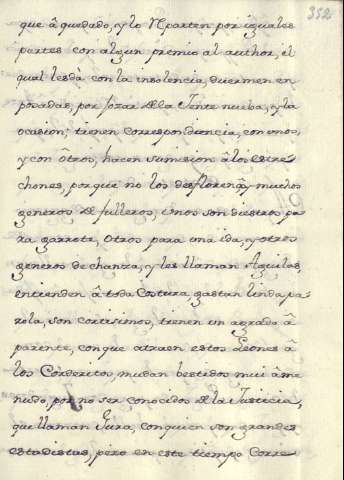 352
que â quedado, y lo Rparten por iguales
partes con algun premio al author, il
qual les dà con la insolencia, duermen en
posadas, por gozar de la Jente nueba, y la
ocasion; tienen correspondencia, con unos,
y con ôtros, hacen sumision â los estre
chones, por que no los desfloren, ay muchos
generos de fulleros, unos son diestros pa
ra garrote, otros para una ida, y otros
generos de chanza, y les llaman Aguilas,
entienden â toda Costura, gastan linda pa-
rola, son cortisimos, tienen un agrado â
parente, con que atraen estos Leones â
los Corderitos, mudan bestidos mui âme
nudo, por no ser conocidos de la Justicia,
que llaman Gura, con quien son grandes
estadistas, pero en este tiempo Corre